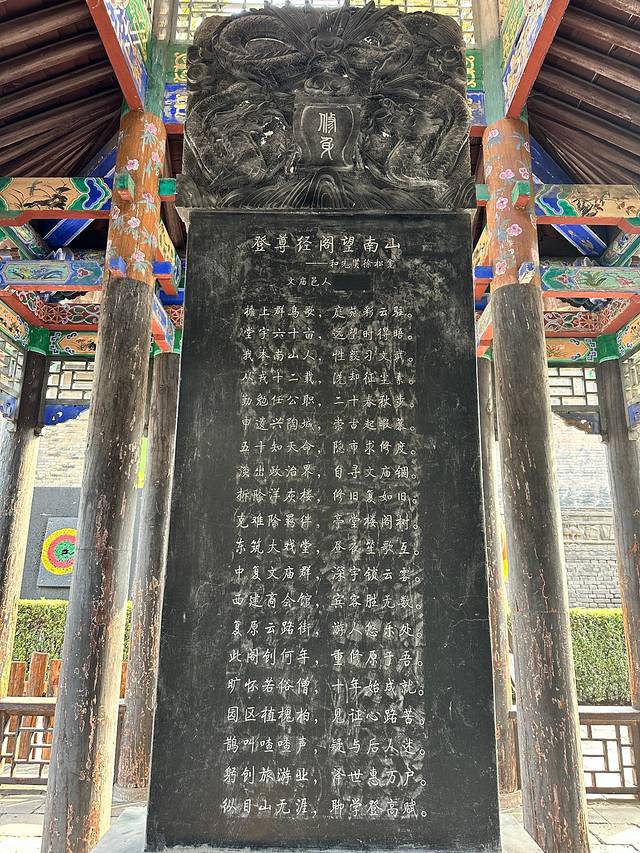 登尊经阁望南山
——和先贤徐松龛
文庙邑人
檐上群鸟歌，庭前彩云驻。
堂宇六十亩，远望时得晤。
我本南山人，性豪习文武。
从戎十二载，洗却征尘素。
勤勉任公职，二十春秋步。
申遗兴陶城，崇古起暇慕。
五十知天命，隐市求修度。
淡出政治界，自寻文庙锢。
拆除洋灰楼，修旧复如旧。
克难阶羁绊，亭堂楼阁树。
东筑大戏堂，昼夜笙歌互。
中复文庙群，深宇锁云雾。
西建商会馆，宾客胜无数。
复原云路街，游人悠乐处。
此阁创何年，重修原于吾。
旷怀若俗僧，十年始成就。
园区植槐柏，见证心路苦。
鹊叫喳喳声，疑与后人述。
躬创旅游业，泽世惠万户。
纵目山无涯，聊学登高赋。